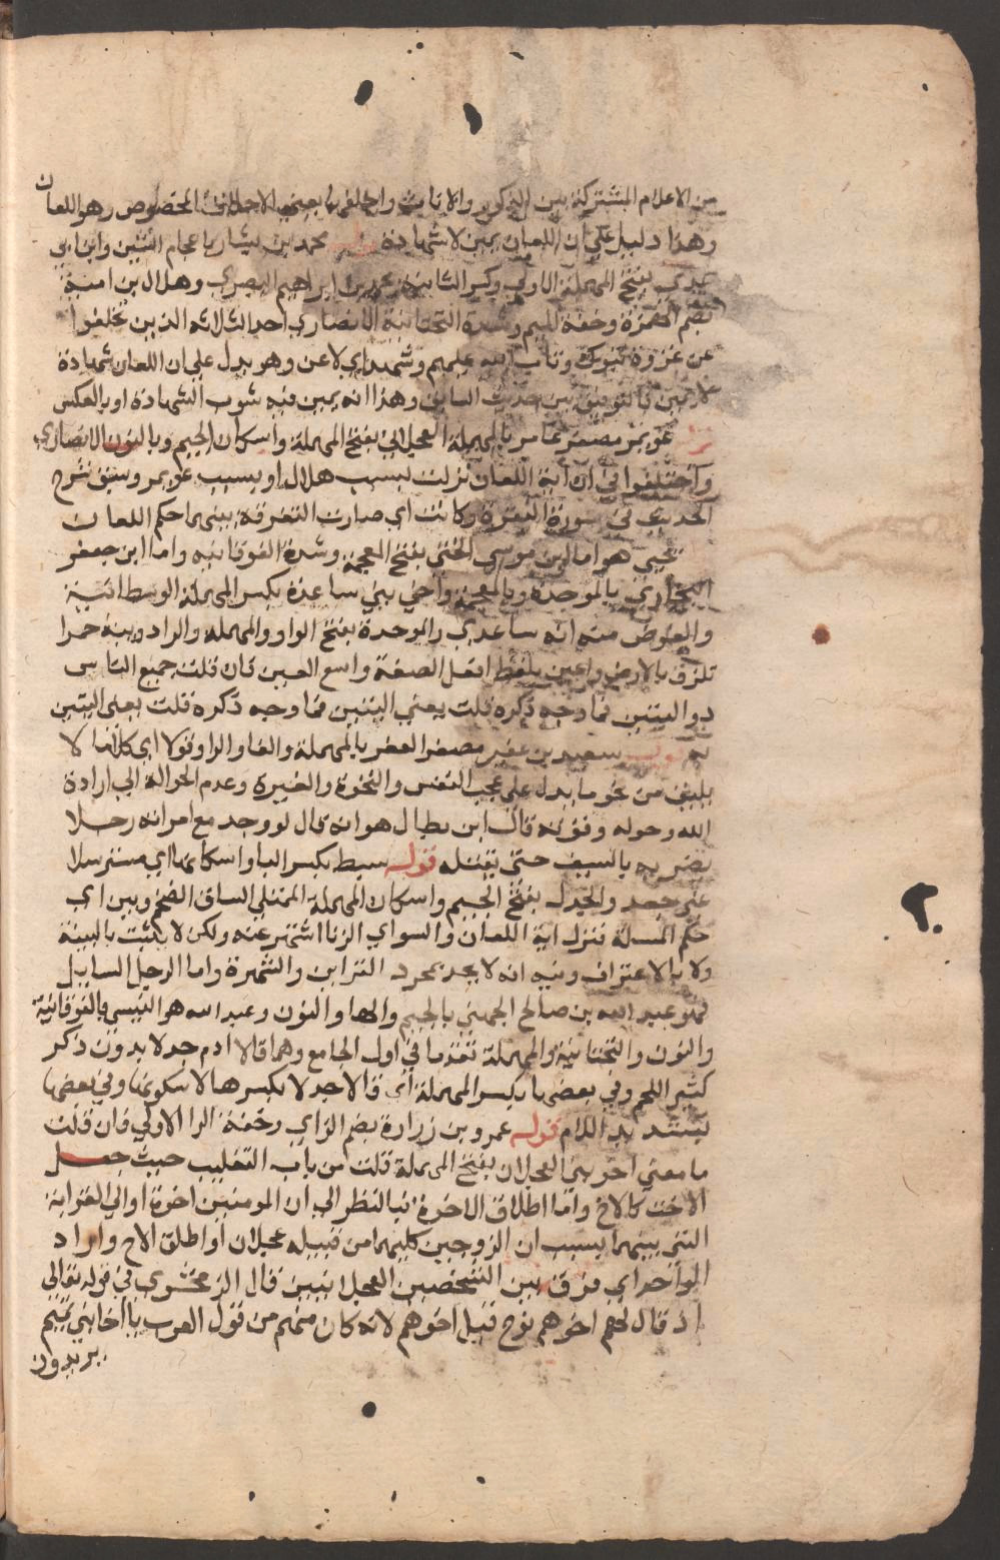 من الاعلام المشتركة بين الذكور والاناث واحلفهما بعض الاحلاف المخصوص وهو اللعان
وهذا دليل على ان اللعان يمين لا شهادة قوله محمد بن بشار باعجام الشين وابن ابي
عدي بفتح المهملة الاولى وكسر الثانية محمد بن ابراهيم البصري وهلال بن امية
بضم الهمزة وخفة الميم وشدة التحتانية الانصاري احد الثلاثه الذين تخلفوا
عن غزوة تبوك وتاب الله عليهم وشهد اي لاعن وهو يدل على ان اللعان شهادة
لا يمين فالتوفيق بين حديث السابق وهذا انه يمين فيه شوب الشهادة او بالعكس
قوله عويمر مصغر عامر بالمهملة العجلاني بفتح المهملة واسكان الجيم وبالنون الانصاري
واختلفوا في ان آية اللعان نزلت بسبب هلال او بسبب عويمر وسبق شرح
الحديث في سورة النور وكانت اي صارت التفرقة بينهما حكم اللعان
يحيى هو اما ابن موسى الختي بفتح المعجمة وشدة الفوقانيه واما ابن جعفر
البخاري بالموحدة وبالمعجمة واخي بني ساعدة بكسر المهملة الوسطانية
والغرض منه انه ساعدي والوحرة بفتح الواو والمهملة والرا دويبة حمرا
تلزق بالارض واعين بلفظ افعل الصفة واسع العين فان قلت جميع الناس
ذو اليتين فما وجه ذكره قلت يعني اليتين فما وجه ذكره قلت بعنى اليتين
قوله سعيد بن عفير مصغر العفر بالمهملة والفا والرا وقولا اي كلاما لا
يليق من نحو ما يدل على عجب النفس والنخوة والغيرة وعدم الحوالة الى ارادة
الله وحوله وقوته قال ابن بطال هو انه قال لو وجد مع امراته رجلا
يضربه بالسيف حتى يقتله قوله سبط بكسر البا واسكانها اي مسترسلا
غير جعد والخدل بفتح الجيم واسكان المهملة الممتلى الساق الضخم وبين اي
حكم المسلة فنزل اية اللعان والسواي الزنا اشتهر عنه ولكن لا يثبت بالبينة
ولا بالاعتراف وفيه انه لا يحد بمجرد القراين والشهرة واما الرجل السايل
فهو عبد الله بن صالح الجهني بالجيم والها والنون وعبد الله هو التنيسي بالفوقانية
والنون والتحتانية والمهملة تقدما في اول الجامع وهما قالا ادم جدلا بدون ذكر
كثير اللحم وفي بعضها بكسر المهملة اي قالا جدلا بكسرها لا سكونها وفي بعضها
بتشديد اللام قوله عمرو بن زرارة بضم الزاي وخفة الرا الاولى فان قلت
ما معنى اخوي بني العجلان بفتح المهملة قلت من باب التغليب حيث جعل
الاخت كالاخ واما اطلاق الاخوة فبالنظر الى ان المومنين اخوة او الى القرابة
التي بينهما بسبب ان الزوجين كليهما من قبيلة عجلان او اطلق الاخ واراد
الواحد اي فرق بين الشخصين العجلانيين قال الزمخشري في قوله تعالى
اذ قال لهم اخوهم نوح قيل اخوهم لانه كان منهم من قول العرب يا اخا بني تميم
يريدون